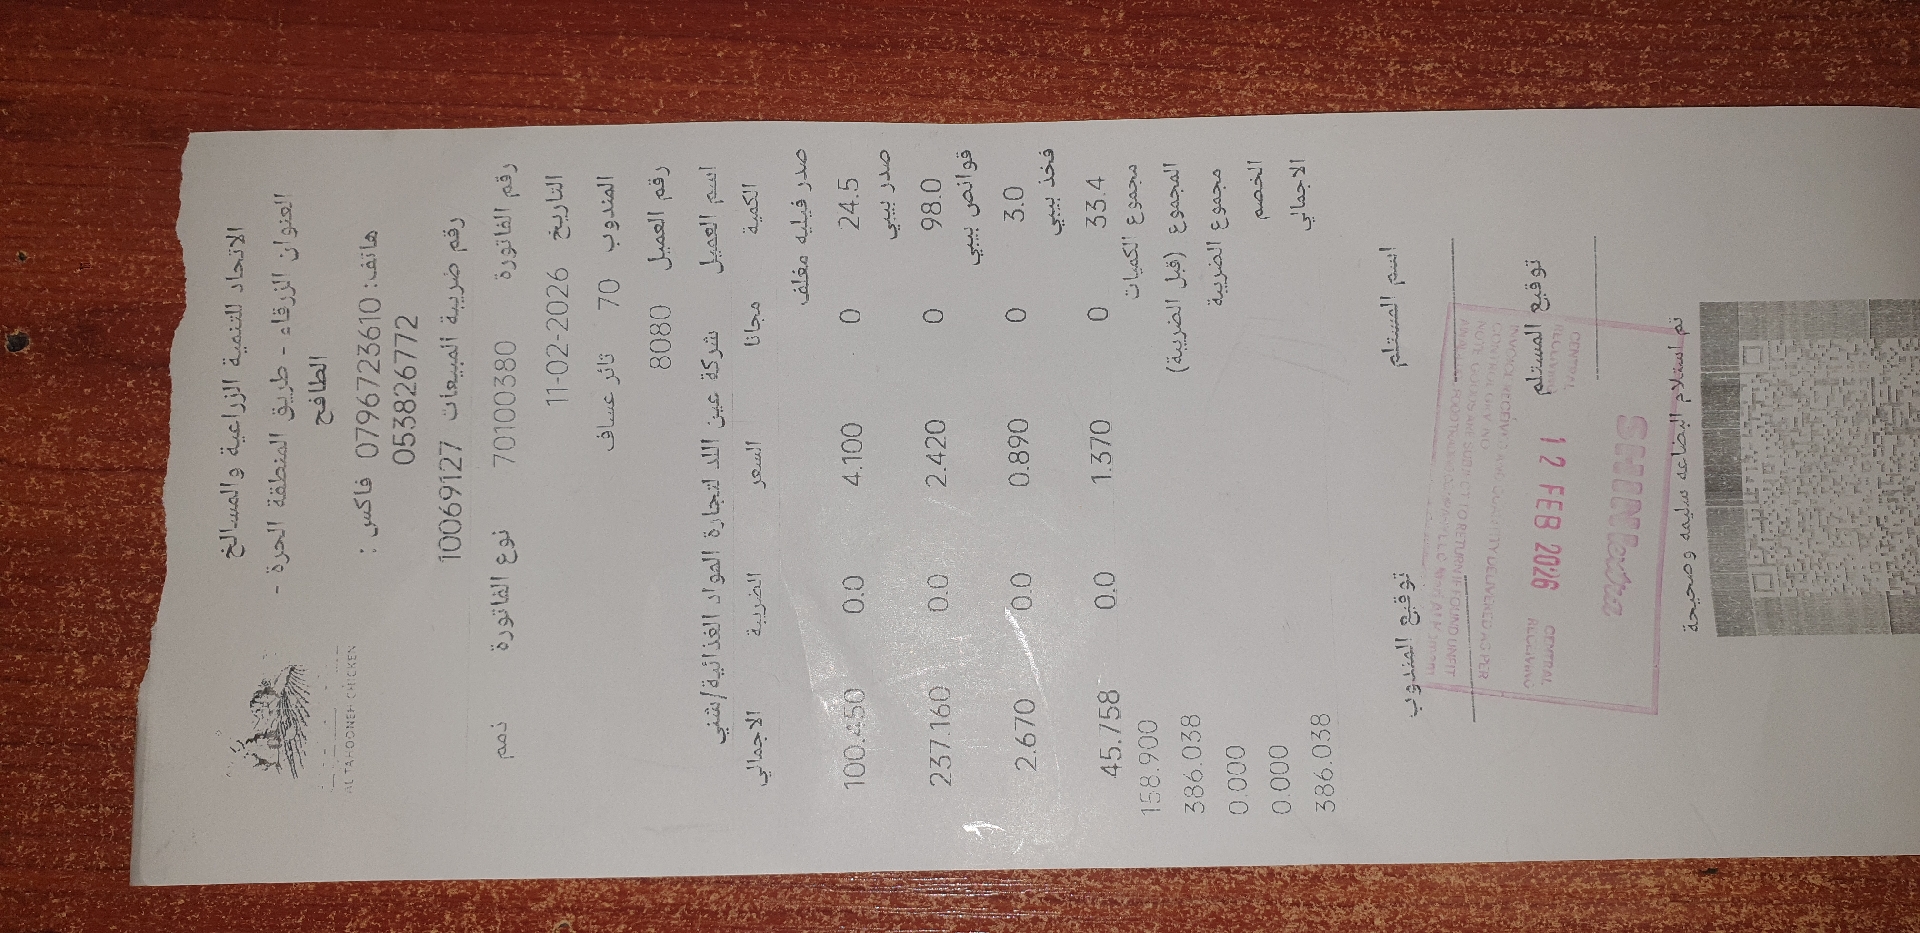 AL TAHOONEH CHICKEN
الاتحاد للتنمية الزراعية والمسالخ
العنوان الزرقاء - طريق المنطقة الحرة -
الطافح
هاتف: 0796723610 فاكس :
0538826772
رقم ضريبة المبيعات 10069127
رقم الفاتورة 70100380 نوع الفاتورة ذمم
التاريخ 11-02-2026
المندوب 70 ثائر عساف
رقم العميل 8080
اسم العميل شركة عين اللد لتجارة المواد الغذائية/شني
الكمية مجانا السعر الضريبة الاجمالي
صدر فيليه مغلف
24.5 0 4.100 0.0 100.450
صدر بيبي
98.0 0 2.420 0.0 237.160
قوانص بيبي
3.0 0 0.890 0.0 2.670
فخذ بيبي
33.4 0 1.370 0.0 45.758
مجموع الكميات 158.900
المجموع (قبل الضريبة) 386.038
مجموع الضريبة 0.000
الخصم 0.000
الاجمالي 386.038
اسم المستلم توقيع المندوب
توقيع المستلم
CENTRAL RECEIVING 12 FEB 2026 CENTRAL RECEIVING
تم استلام البضاعه سليمه وصحيحة